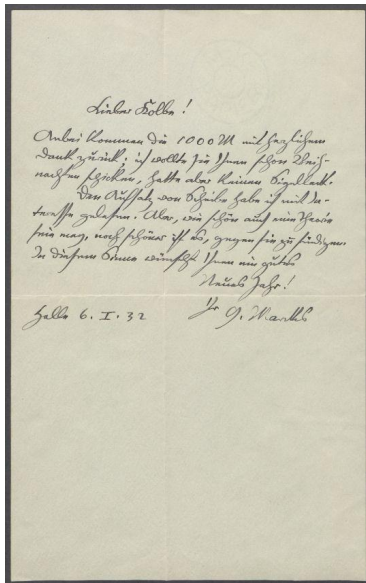 Lieber Kolbe!
Anbei kommen die 1000 M mit herzlichem
Dank zurück; ich wollte sie Ihnen schon Weih-
nachten schicken, hatte aber keinen Siegellack.
Den Aufsatz von Scheibe habe ich mit In-
teresse gelesen. Aber, wie schön auch eine Theorie
sein mag, noch schöner ist es, gegen sie zu sündigen.
In diesem Sinne wünscht Ihnen ein gutes
Neues Jahr!
Halle 6. I. 32 Ihr G. Marcks